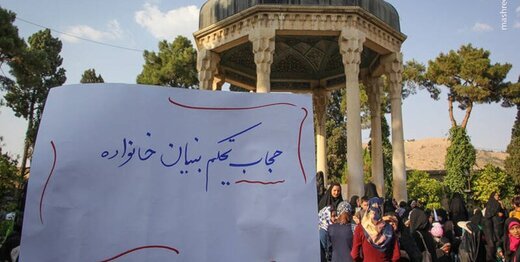 حجاب تحکیم بنیان خانواده
mashreg